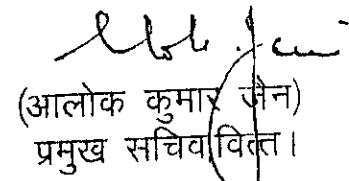 (आलोक कुमार जैन)
प्रमुख सचिव वित्त।